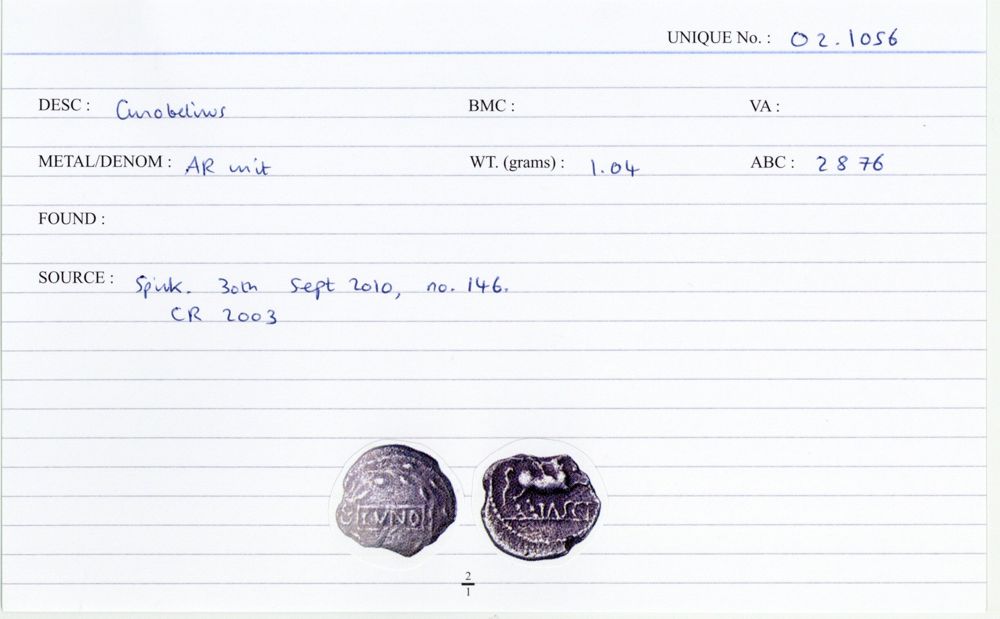 UNIQUE No. : 02.1056
DESC : Cunobelinus BMC : VA :
METAL/DENOM : AR unit WT. (grams) : 1.04 ABC : 2876
FOUND :
SOURCE : Spink. 30th Sept 2010, no. 146.
CR 2003
CVNO
TASCI
2
1